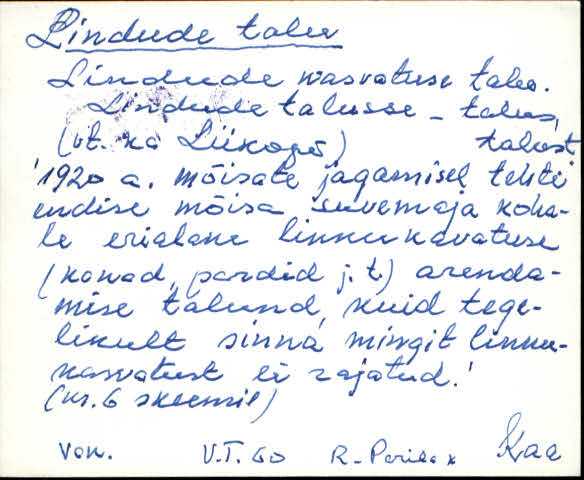 Lindude talu
Lindude kasvatuse talu.
Lindude talusse - talus,
(vt. ka Liikopõ) talust
1920 a. mõisate jagamisel tehti
endise mõisa suvemaja koha-
le erialane linnukavatuse
(kanad, pardid j.t.) arenda-
mise talund, kuid tege-
likult sinna mingit linnu-
kasvatust ei rajatud.
(nr. 6 skeemil)
Von. V.T. 60 R- Kaa